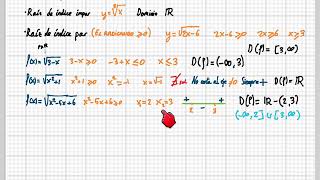 · Raíz de índice impar y=ⁿ√x Dominio ℝ
· Raíz de índice par (El radicando ≥0) y=√2x-6 2x-6≥0 2x≥6 x≥3
f(x)=√3-x 3-x≥0 -3+x≤0 x≤3 D(f)=(-∞,3] D(f)=[3,∞)
f(x)=√x²+1 x²+1=0 x²=-1 x=√-1 ∄ sol. No corta al eje Siempre + D(f)=ℝ
f(x)=√x²-5x+6 x²-5x+6≥0 x₁=2 x₂=3 + - + 2 3 D(f)=ℝ-(2,3)
(-∞,2] ∪ [3,∞)